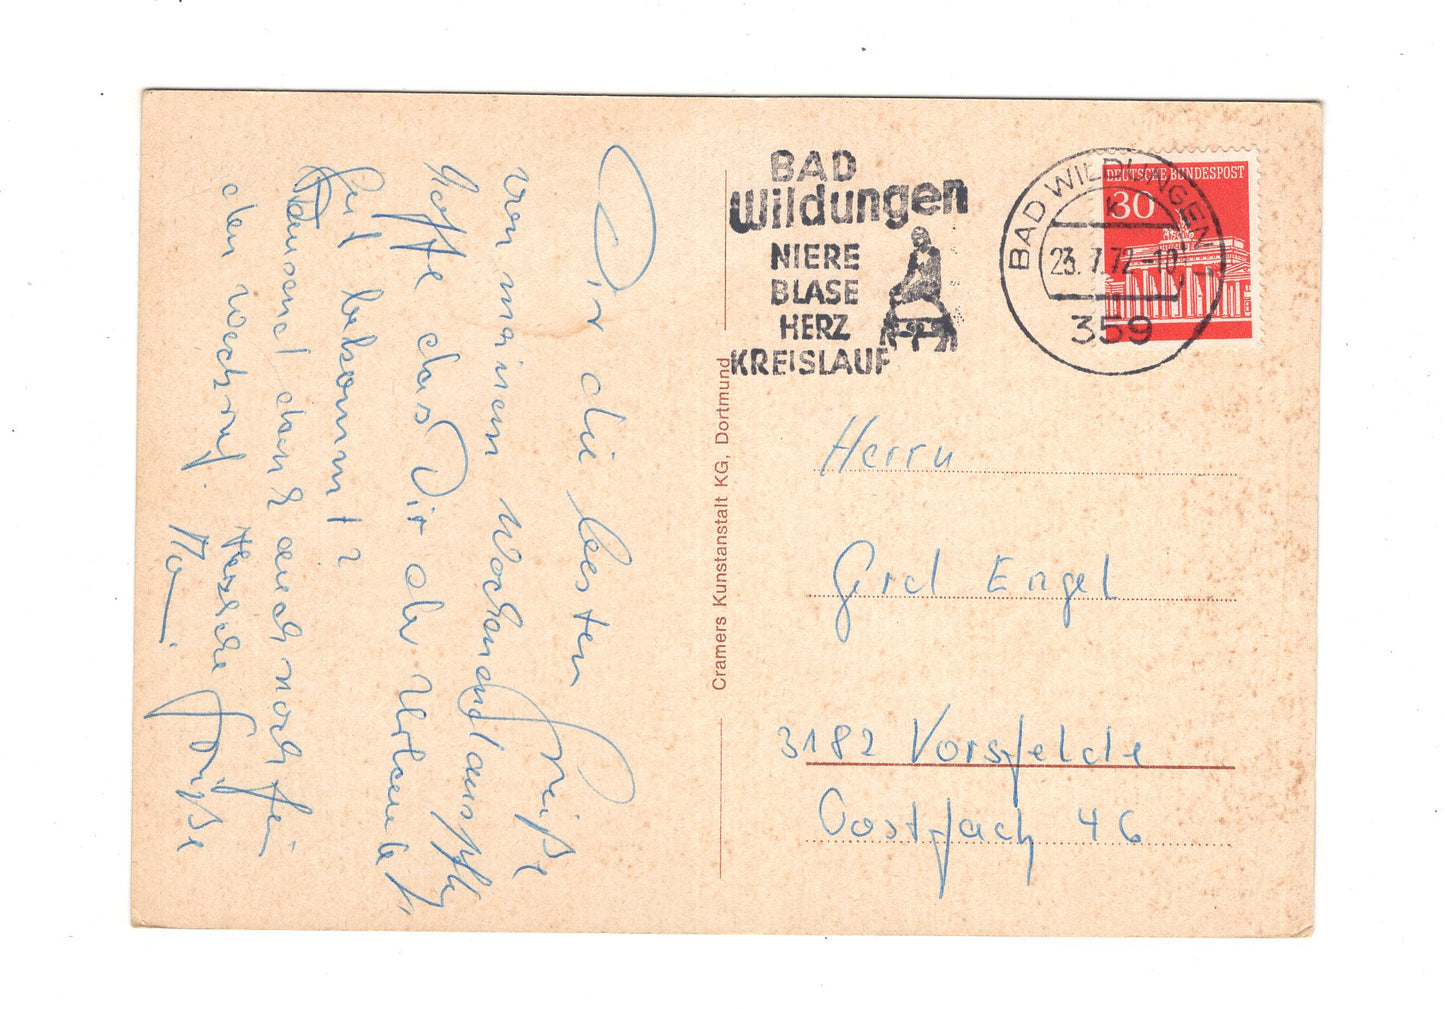 Dir die besten Grüße
von meinem Wochenendausflug
Hoffe das Dir der Urlaub
gut bekommt?
Tausend dank auch noch für
den Weckruf.
Herzliche Grüße
BAD
Wildungen
NIERE
BLASE
HERZ
KREISLAUF
BAD WILDUNGEN 1
k
23.7.72-10
359
DEUTSCHE BUNDESPOST
30
Cramers Kunstanstalt KG, Dortmund
Herrn
Grd Engel
3182 Vorsfelde
Postfach 46